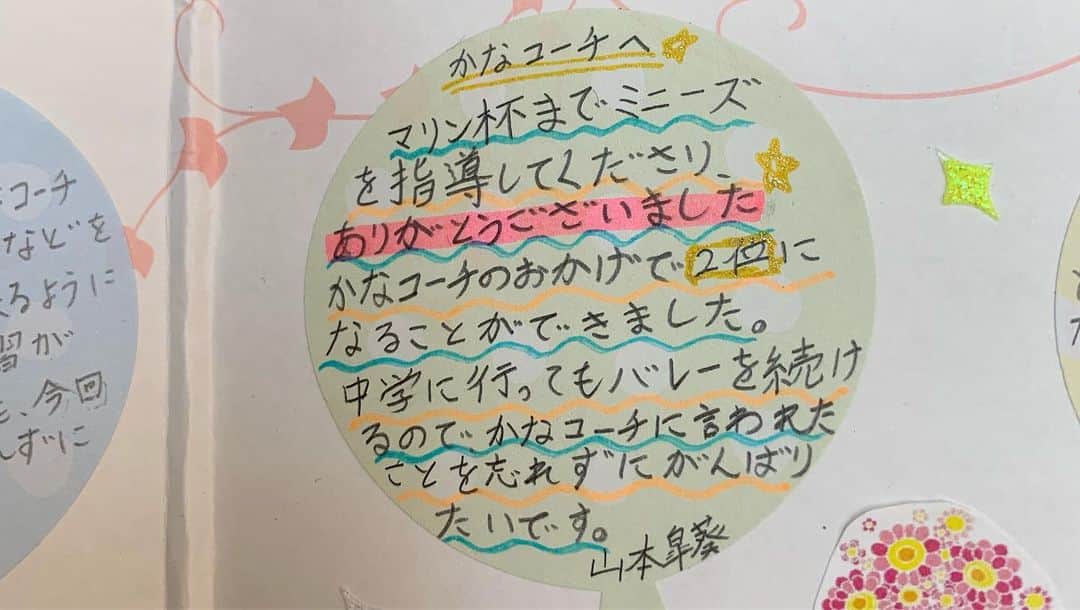 かなコーチへ
マリン杯までミニーズ
を指導してくださり、
ありがとうございました
かなコーチのおかげで2位に
なることができました。
中学に行ってもバレーを続け
るので、かなコーチに言われた
ことを忘れずにがんばり
たいです。
山本皐葵
コーチ
などを
るように
習が
、今回
しずに